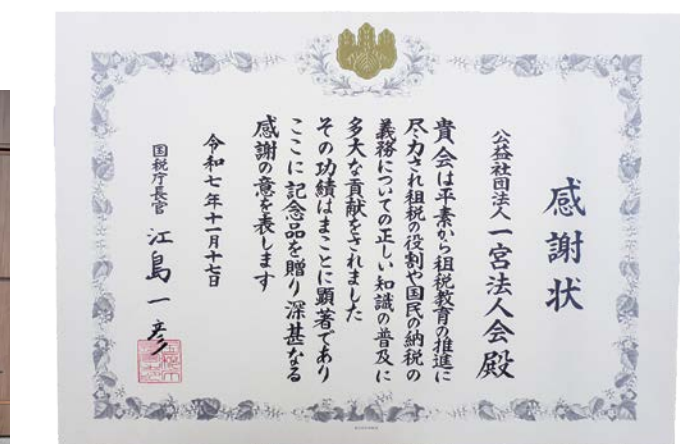 感謝状
公益社団法人 一宮法人会 殿
貴会は平素から租税教育の推進に
尽力され租税の役割や国民の納税の
義務についての正しい知識の普及に
多大な貢献をされました
その功績はまことに顕著であり
ここに記念品を贈り深甚なる
感謝の意を表します
令和七年十一月十七日
国税庁長官 江島一彦